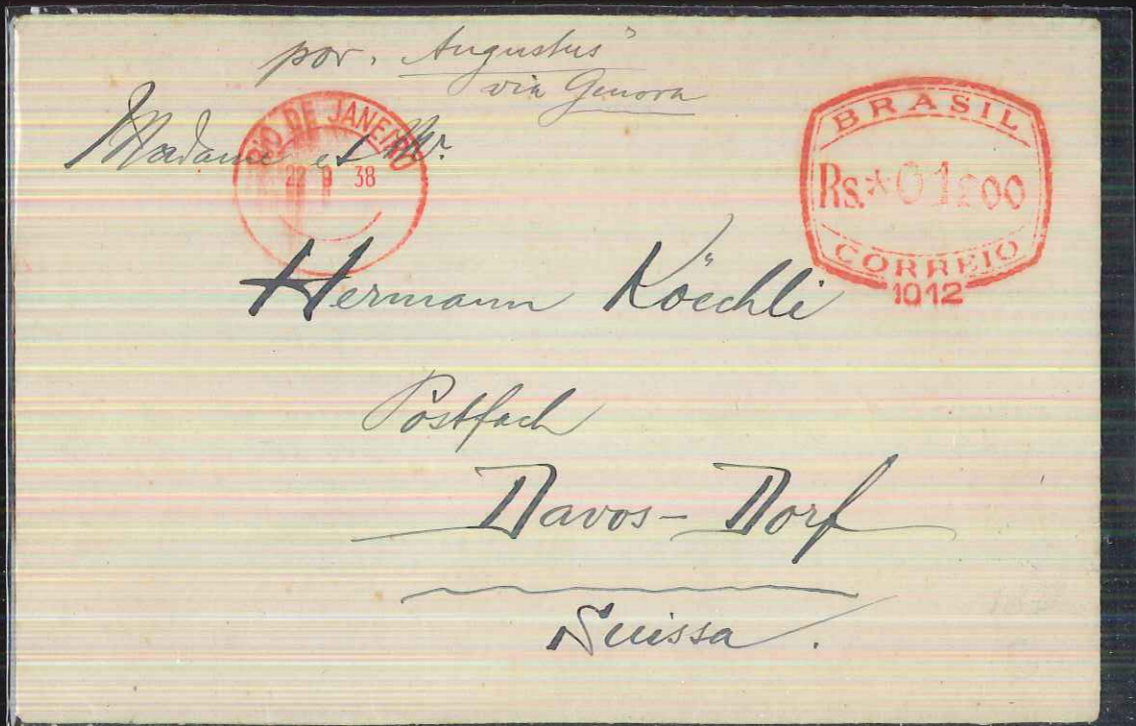 por. "Augustus"
via Genova
RIO DE JANEIRO
22 9 38
BRASIL
Rs.*01200
CORREIO
1012
Madame et Mr.
Hermann Köechli
Postfach
Davos-Dorf
Suissa.